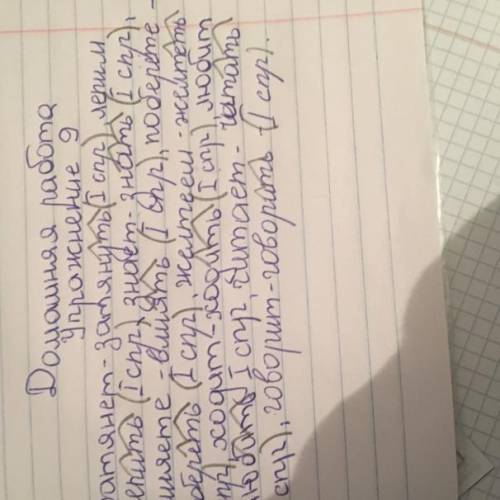 Домашняя работа
Упражнение 9
атянет-затянуть (I спр) лепим
епить (I спр) знает-знать (I спр),
ияете-влиять (I спр), поберёте-
оберёть (I спр), желтеем-желтеть
пр) ходит-ходить (I спр) любит
юбить I спр, читает-читать
спр), говорит-говорить (I спр).